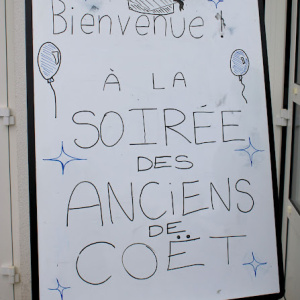 Bienvenue !
À LA
SOIRÉE
DES
ANCiENS
DE
COËT